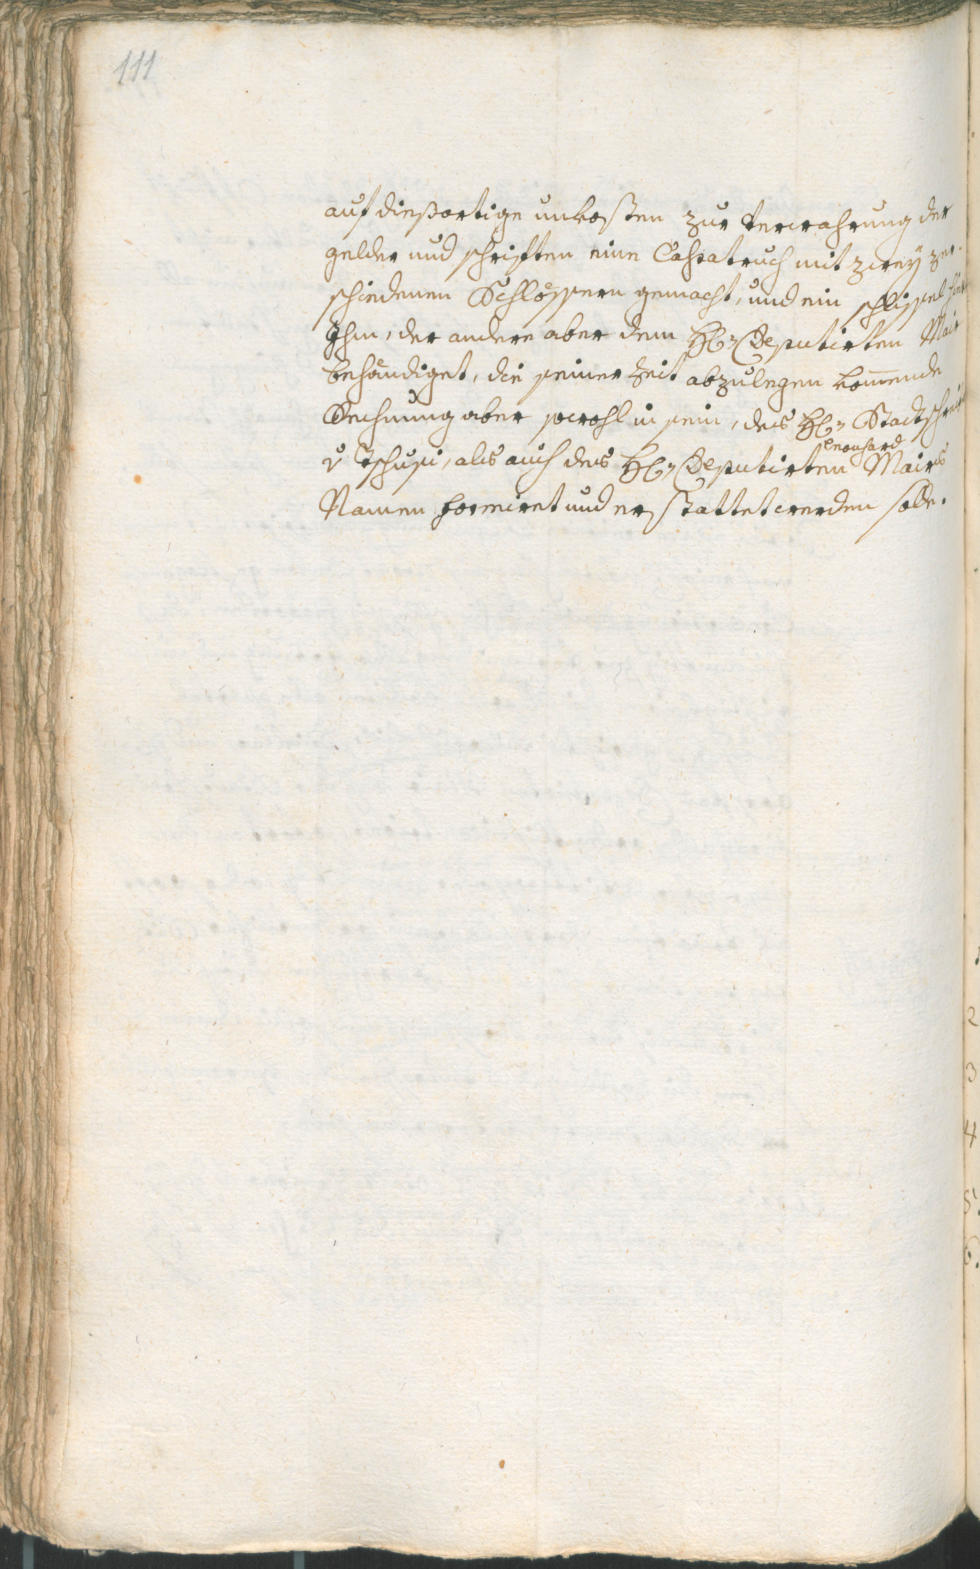 111
auf dießortige unkosten zur Verwahrung der
gelder und schrifften eine Cassatruch mit zweÿ ver-
schiedenen Schlössern gemacht, und ein schlissel
Ihm, der andere aber dem H: Deputirten Mair
behändiget, die seiner Zeit abzulegen kom̄ende
Rechnung aber sowohl in sein, des H: Stadtschrei
v Tschusi, als auch des H: Deputirten Leonhard Mairs
Namen formiret und erstattet werden solle.
2
3
4
5.
6.